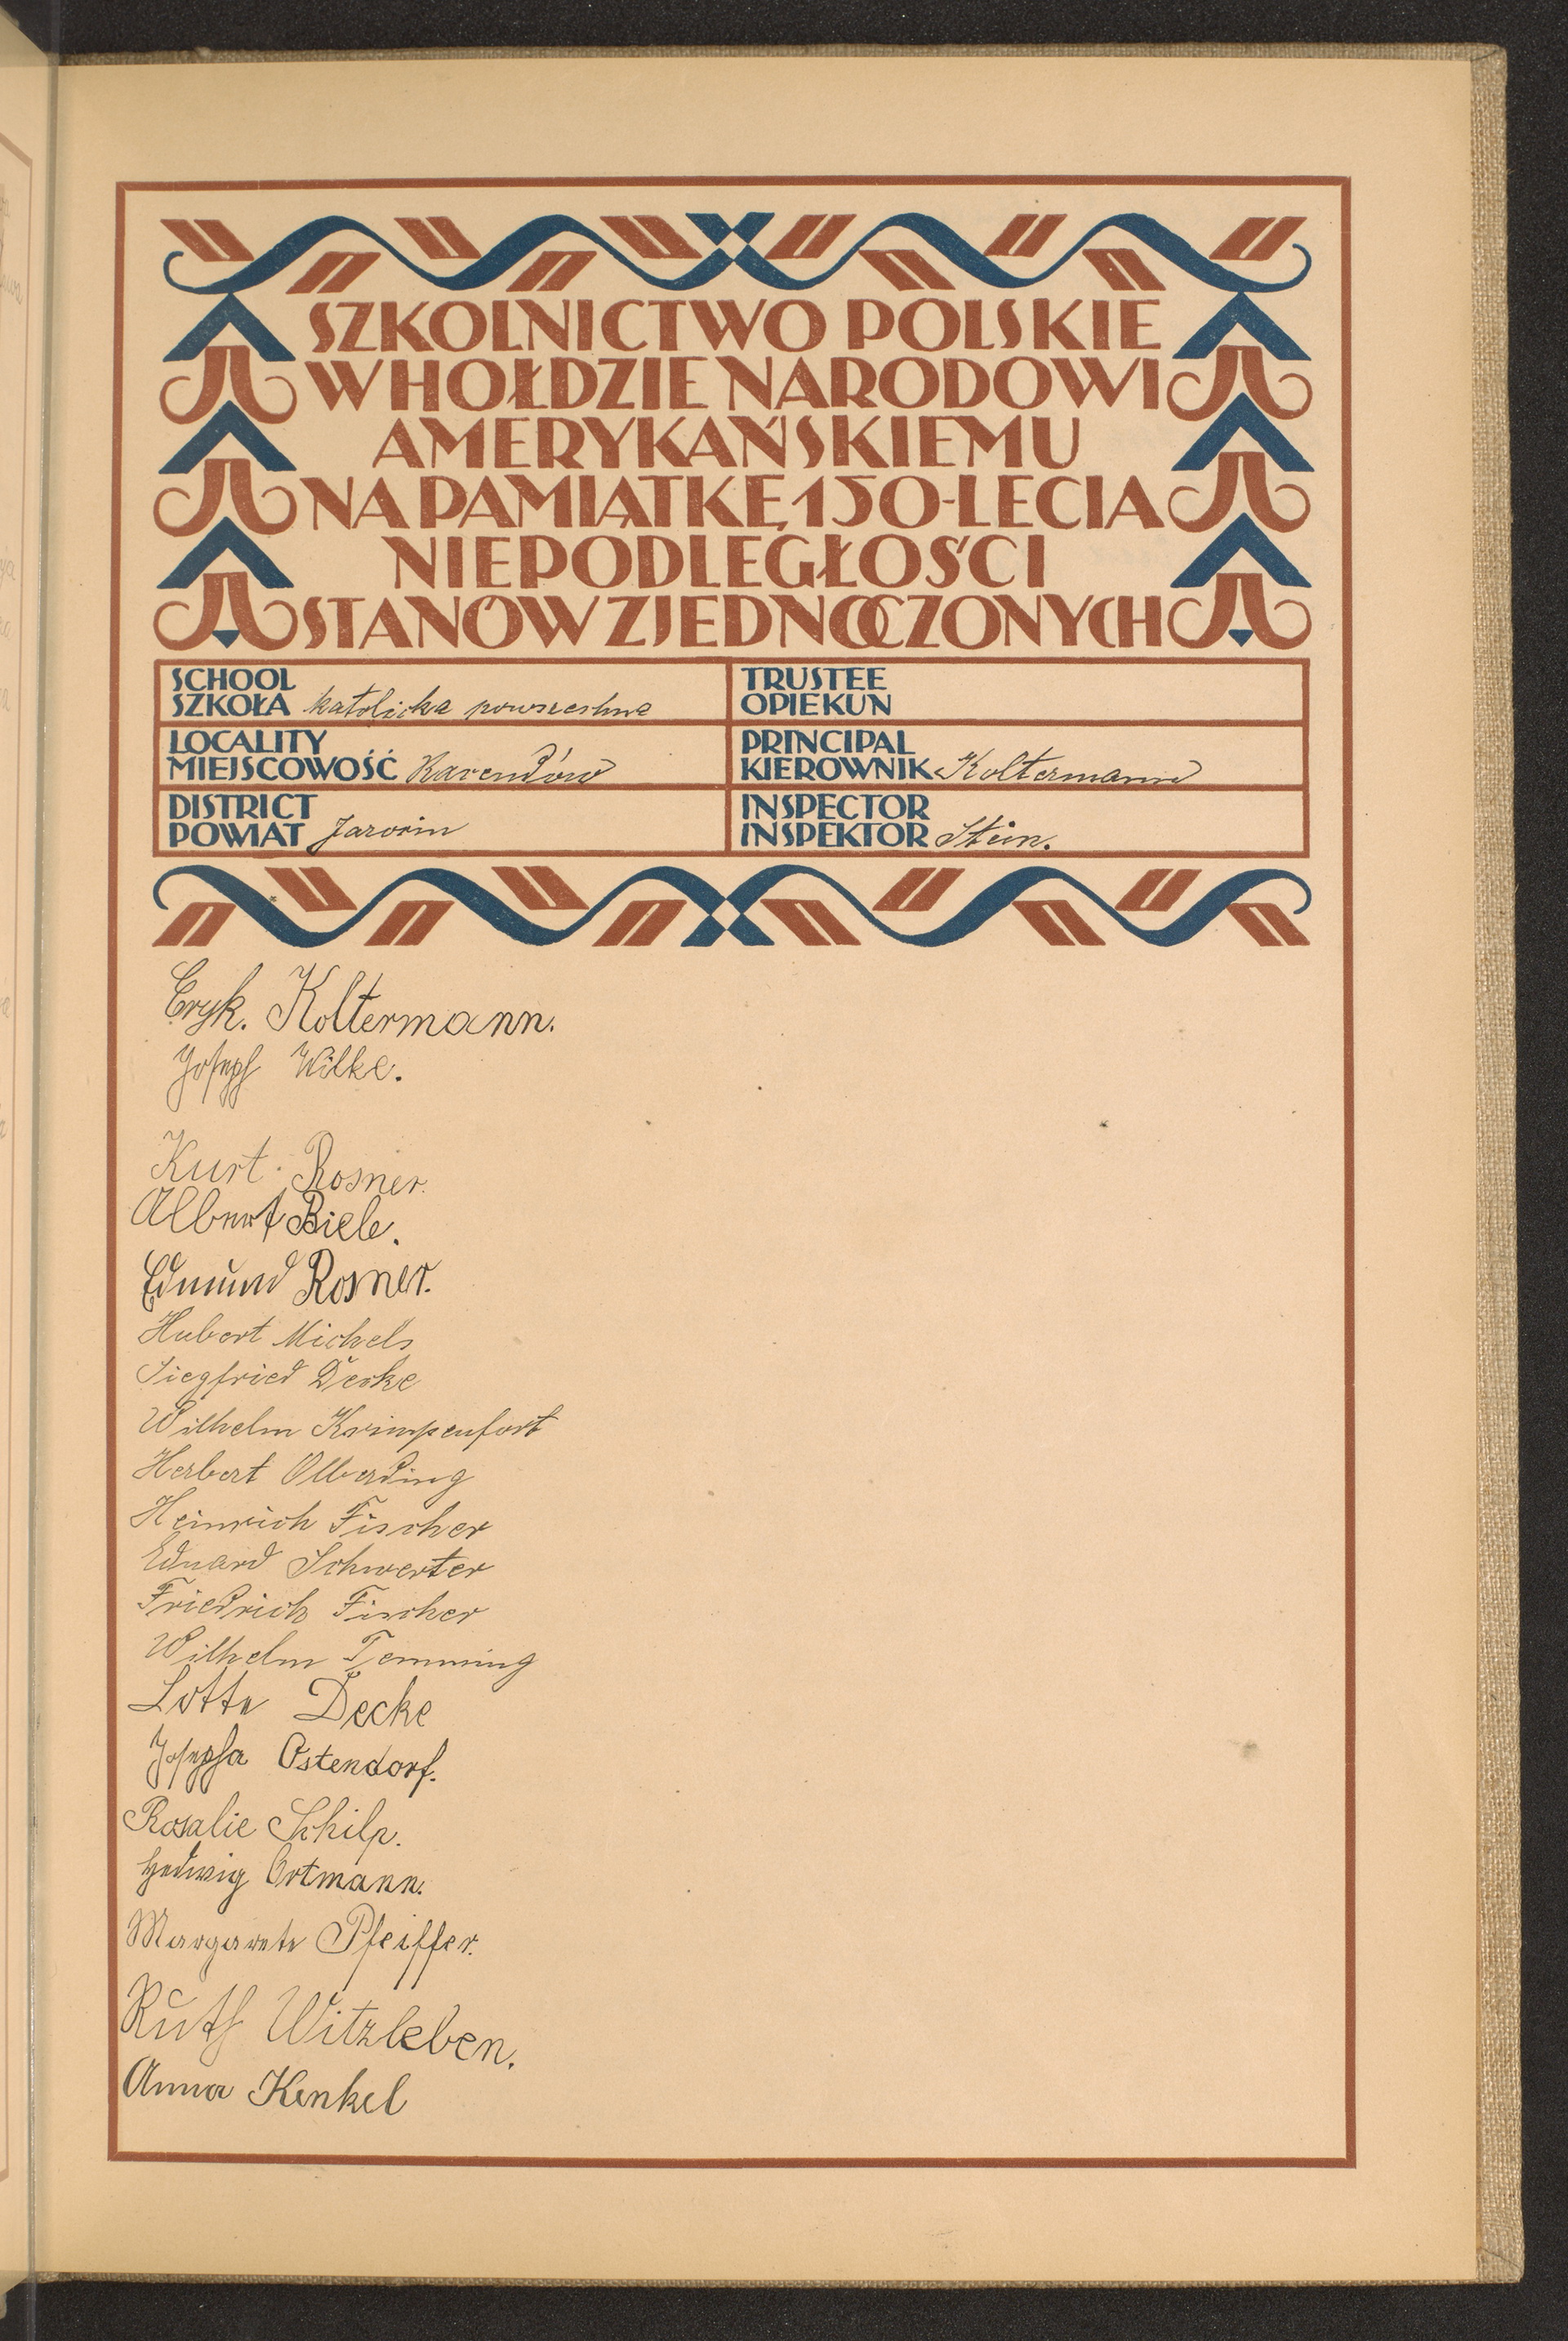 SZKOLNICTWO POLSKIE
W HOŁDZIE NARODOWI
AMERYKAŃSKIEMU
NA PAMIĄTKĘ 150-LECIA
NIEPODLEGŁOŚCI
STANÓW ZJEDNOCZONYCH
SCHOOL
SZKOŁA katolicka powszechna
TRUSTEE
OPIEKUN
LOCALITY
MIEJSCOWOŚĆ
PRINCIPAL
KIEROWNIK Koltermann
DISTRICT
POWIAT Jarocin
INSPECTOR
INSPEKTOR Stein.
Eryk. Koltermann.
Joseph Wilke.
Kurt Rosner.
Albert Biele.
Edmund Rosner.
Hubert Michels
Siegfried Decke
Wilhelm Krimpenfort
Herbert Olberding
Heinrich Fischer
Eduard Schwerter
Friedrich Fischer
Wilhelm Temming
Lotte Decke
Josepha Ostendorf.
Rosalie Schilp.
Hedwig Ortmann.
Margarete Pfeiffer.
Ruth Witzleben.
Anna Kenkel